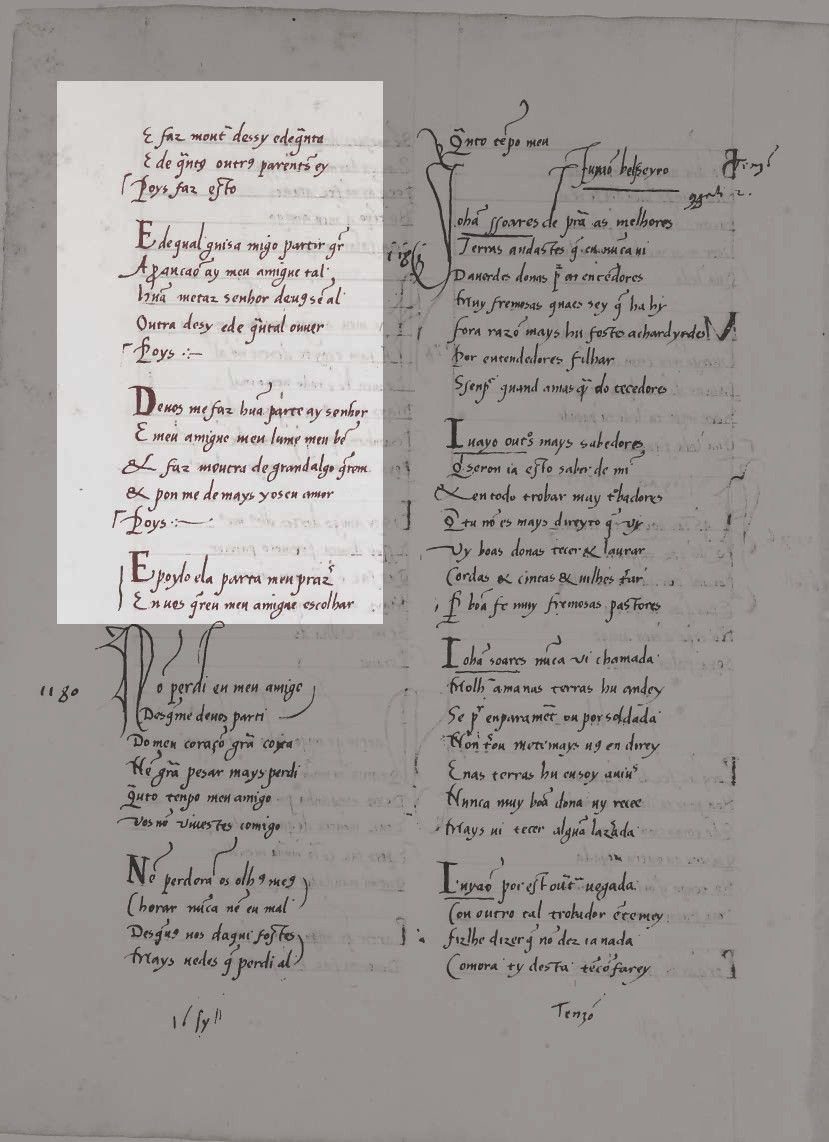 E faz mout̃ dessy ede q̃nto
E de q̃nt9 outr9 parent̃s ey
Poys faz esto
E de qual guisa migo partir q̃r
A p̃ guncaõ ay meu amigue tal
huã metaz senhor deu9 sẽ al
Outra desy ede q̃ntal ouuer
Poys
Deuos me faz huã parte ay senhor
E meu amigue meu lume meu bẽ
& faz mouera de grandalgo q̃rem
& pon me de mays yoseu amor
Poys
E poylo ela parta meu praz̃
En uos q̃reu meu amigue escolhar
Nõ perdi eu meu amigo
Desq̃me deuos parti
Domeu coraçõ grã coyta
Nẽ grã pesar mays perdi
Q̃nto tenpo meu amigo
Vos nõ uiuestes comigo
Nẽ perderã os olh9 me9
Chorar nũca nẽ eu mal
Desq̃u9 uos daqui fostes
Mays uedes q̃ perdi al
1180
Q̃nto tẽpo meu
Juyaõ bolseyro
Tenzõ
Johã ssoares de prã as melhores
Terras andastes q̃ eu nũca ui
Dauerdes donas p̃ entẽdedores
Muy fremosas quaes sey q̃ ha hy
fora razõ mays hu fostes achar dyrdes
Por entendedores filhar
Ssenp̃ quand amas q̃r do tecedores
Juyão out̃9 mays sabedores
Q̃seron ia esto saber de mĩ
& en todo trobar may t̃badores
Q̃ tu nõ es mays direyto q̃ uy
Vy boas donas tecer & laurar
Cordas & cintas & uilhes t̃ar
P̃ boã fe muy fremosas pastores
Johã soares nũca ui chamada
Molh̃ ama nas terras hu andey
Se p̃r enparamẽt ou por soldada
Nõn
Enas terras hu eu soy
Nunca muy boã dona uy tecer
Mays ui tecer algũa lazrada
Juyaõ por est out̃ uegada
Con outro tal trobador ẽtẽcey
fizlhe dizer q̃ nõ dezia nada
Comora ty desta tẽcõ farey
Tenzõ